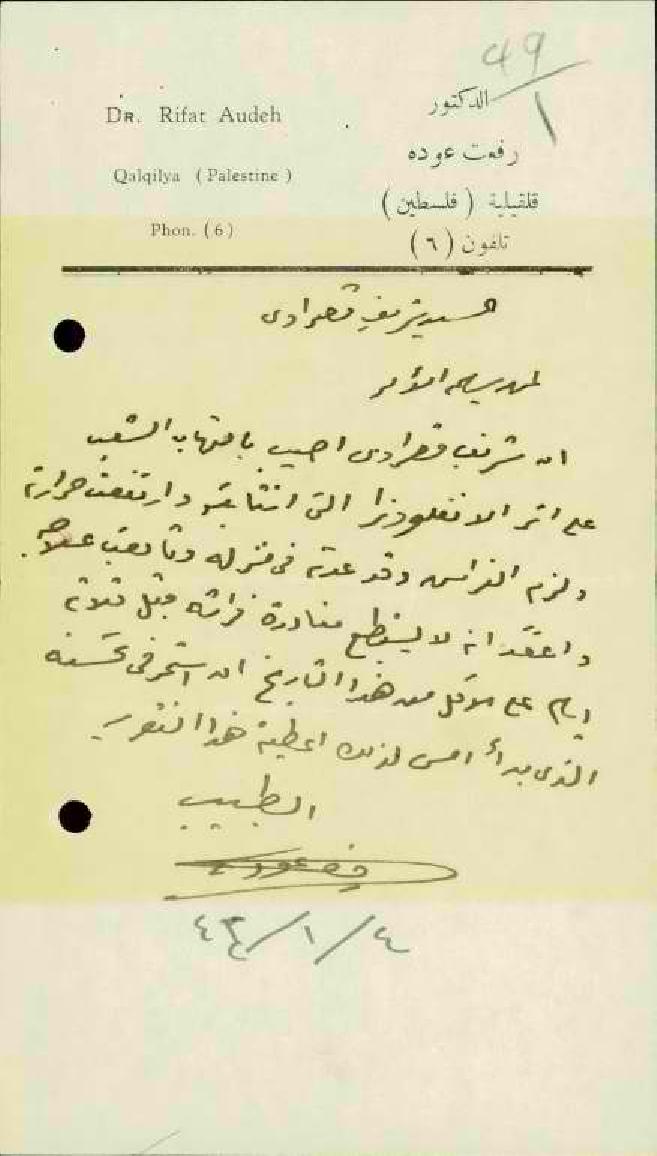 49/1
DR. Rifat Audeh
Qalqilya (Palestine)
Phon. (6)
الدكتور
رفعت عوده
قلقيلية (فلسطين)
تلفون (٦)
السيد شريف
لمن يهمه الأمر
ان شريف اصيب بالتهاب الشعب
على اثر الانفلونزا التى انتابته وارتفعت حرارته
ولزم الفراش وقد عدته فى منزله وتابعت علاجه
واعتقد انه لا يستطيع مغادرة فراشه قبل ثلاثة
ايام على الاقل من هذا التاريخ ان استمر فى تحسنه
الذى بدأ امس لذلك اعطيته هذا التقرير
الطبيب